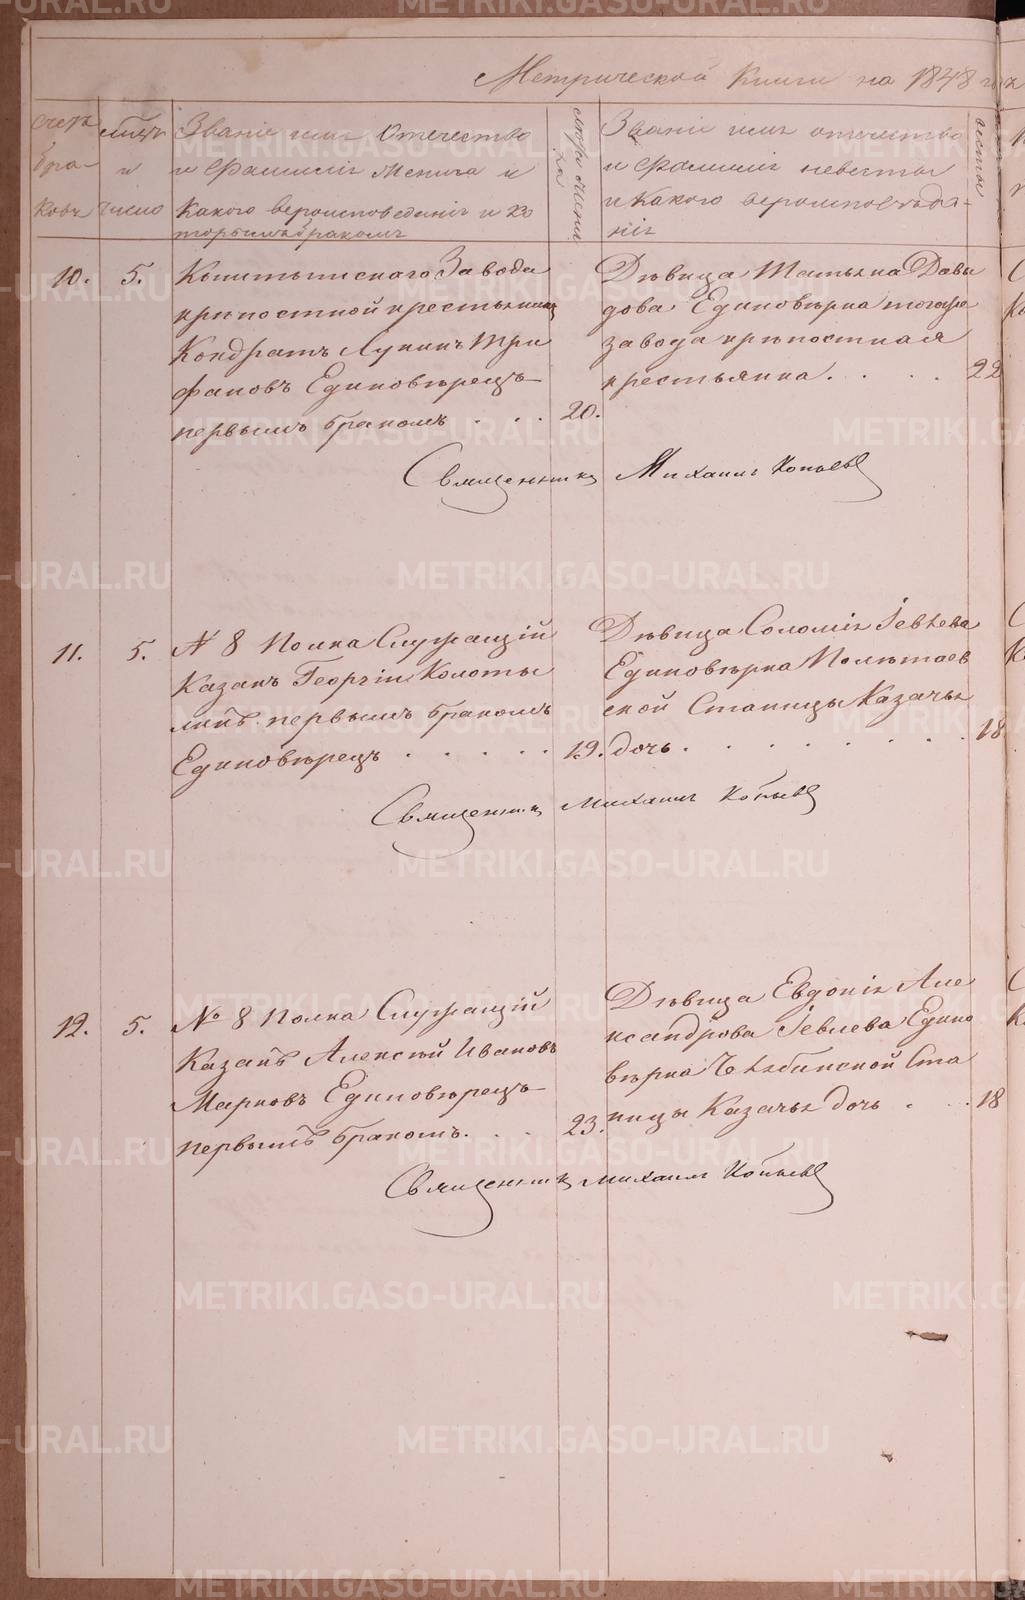 Метрической Книги на 1848 год
счетъ браковъ
мѣцъ и число
Званіе имя Отечество
и Фамилія Жениха и
Какого вероисповеданія и ко
торымъ бракомъ
лѣта жениха
Званіе имя отчество
и фамилія невесты
и Какого вероисповѣда-
нія
невесты
10. 5. Кыштымскаго Завода
крѣпостной крестьянинъ
Кондратъ Лукинъ Три
фановъ Единовѣрецъ
первымъ бракомъ . . . 20.
Дѣвица Татьяна Давы
дова Единовѣрка тогоже
завода крѣпостная
крестьянка. . . . 22
Священникъ Михаилъ Копьевъ
11. 5. № 8 Полка Служащій
Казакъ Георгій Колоты
линъ первымъ бракомъ
Единовѣрецъ . . . . . 19.
Дѣвица Соломія Іевлева
Единовѣрка Полѣтаев
ской Станицы Казачья
дочь. . . . . . . . 18
Священникъ Михаилъ Копьевъ
12. 5. № 8 Полка Служащій
Казакъ Алексѣй Ивановъ
Марковъ Единовѣрецъ
первымъ бракомъ. . . 23.
Дѣвица Евдокія Але
ксандрова Іевлева Едино
вѣрка Челябинской Ста
ницы Казачья дочь . . . 18
Священникъ Михаилъ Копьевъ
METRIKI.GASO-URAL.RU